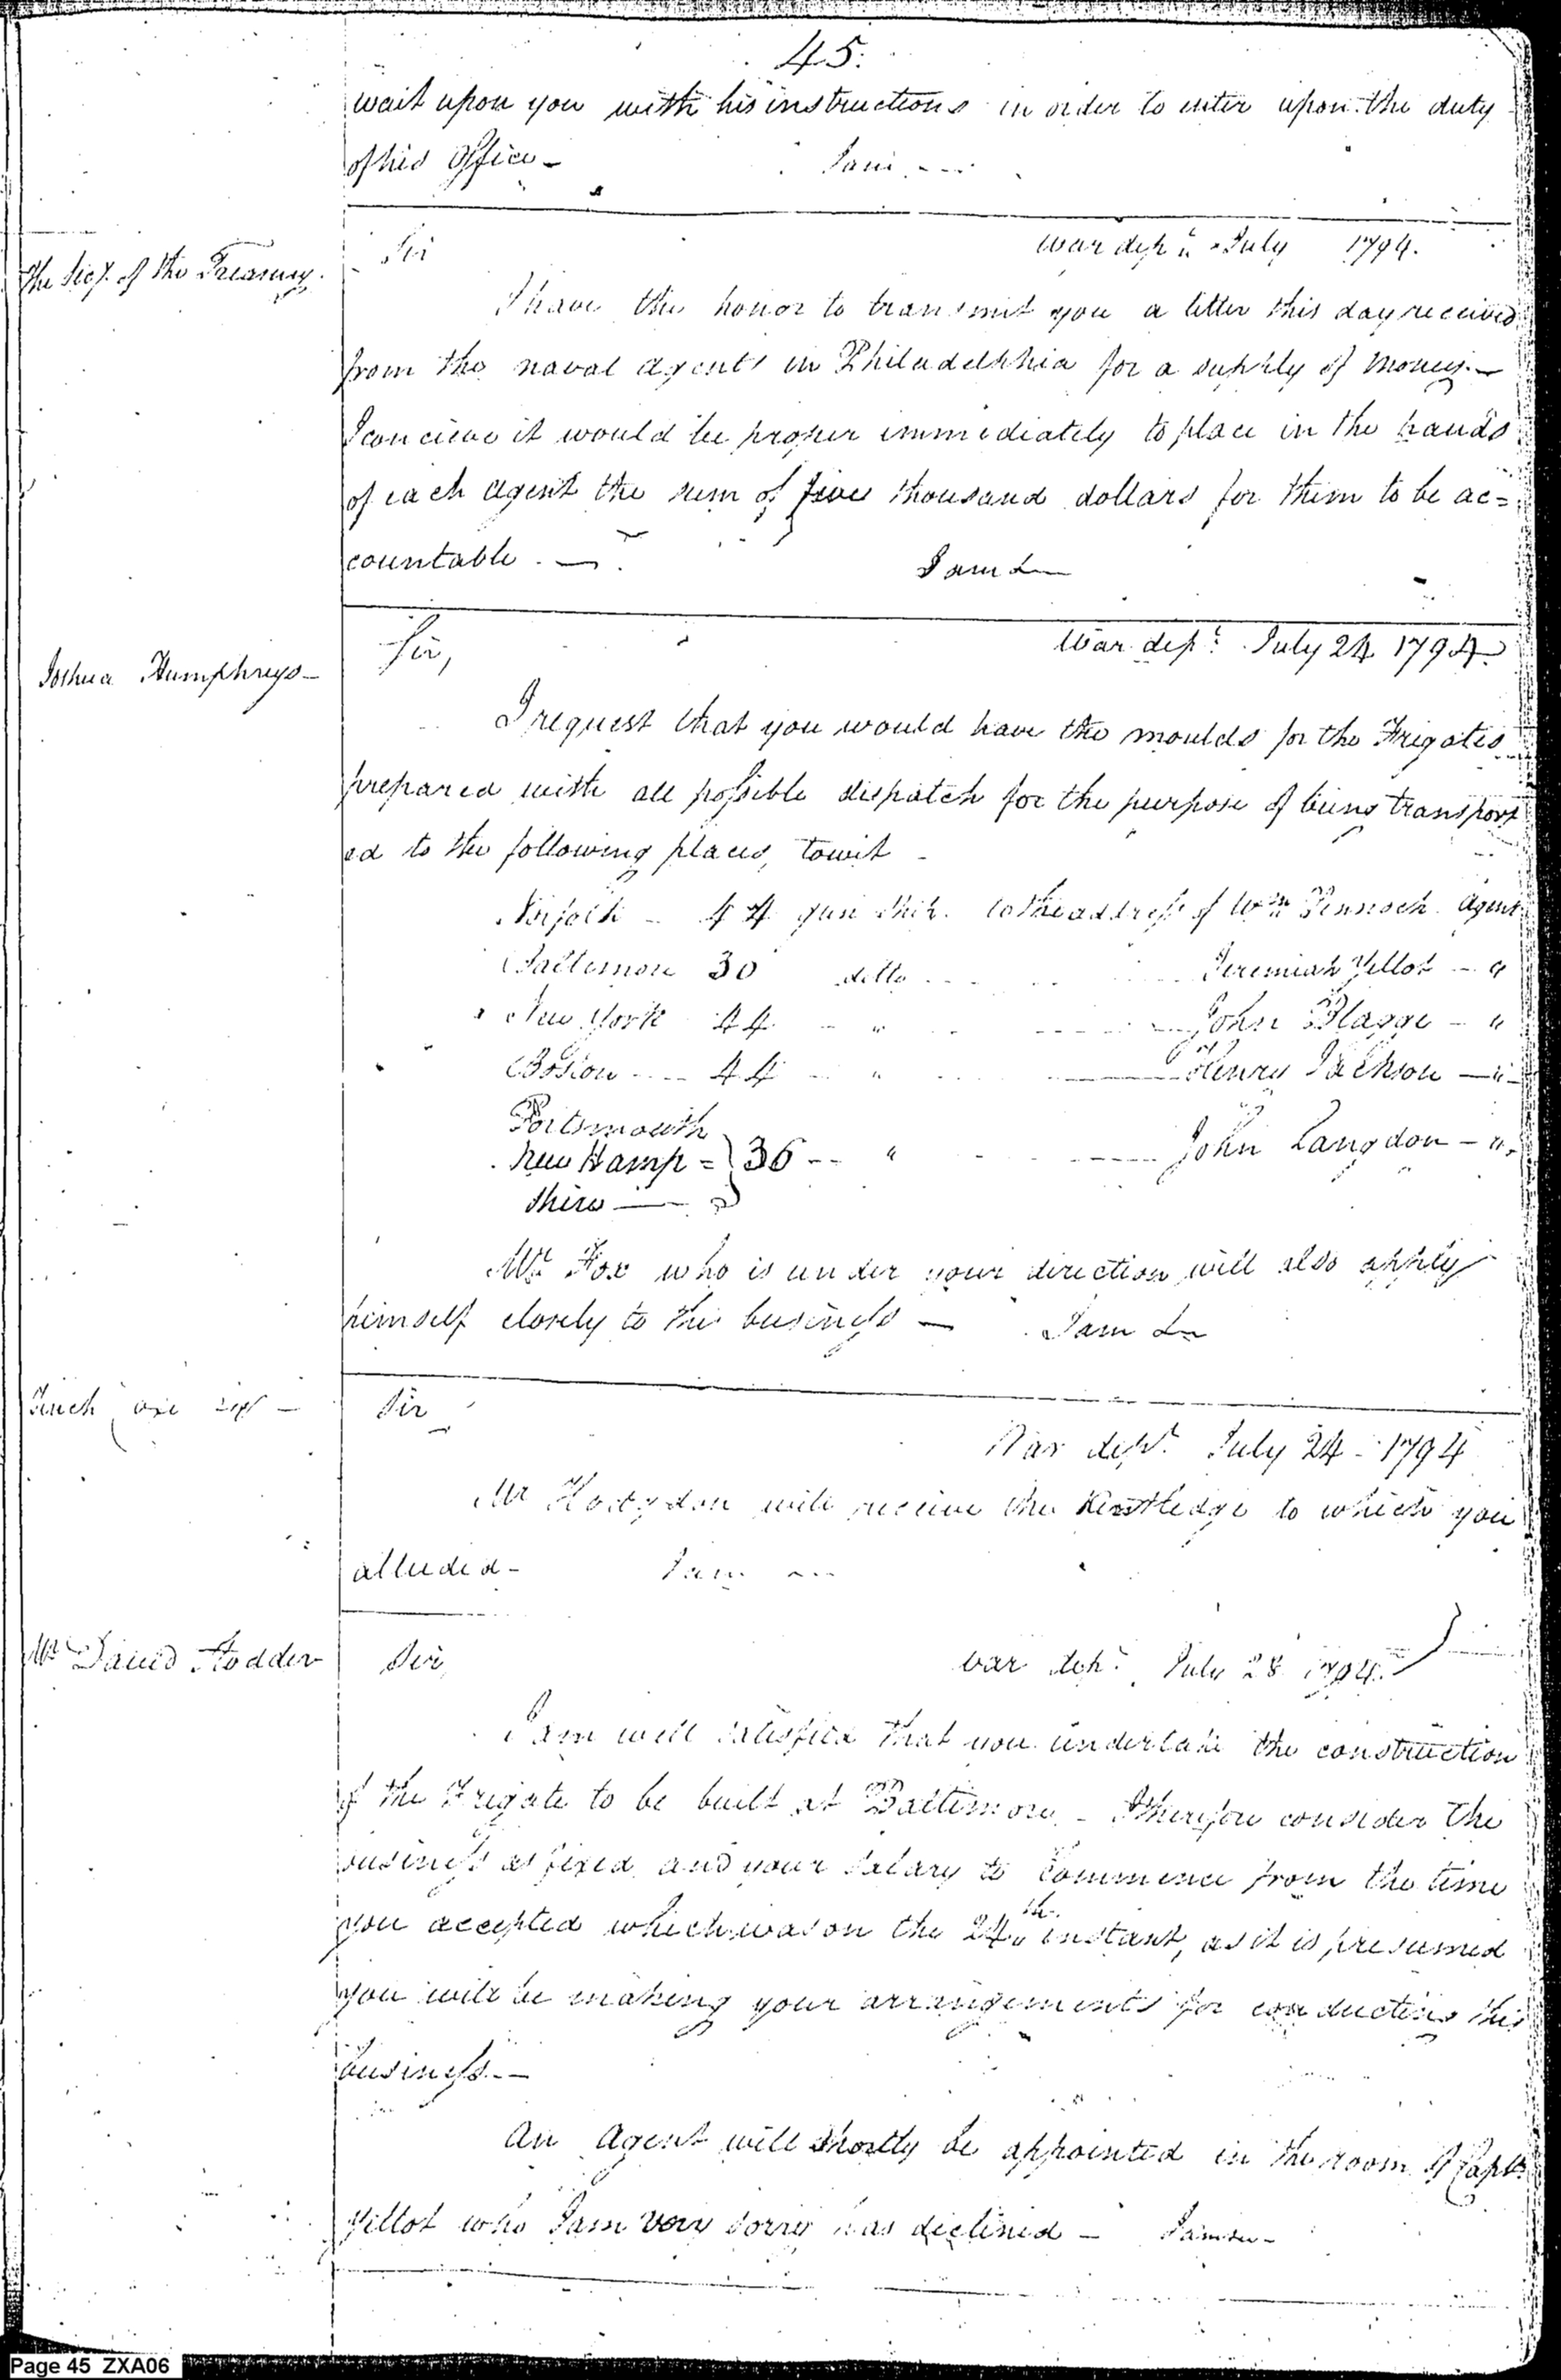 45.
wait upon you with his instructions in order to enter upon the duty
of his Office –
I am
The Secy. of the Treasury.
Sir
War dept. July 1794.
I have the honor to transmit you a letter this day received
from the naval agents in Philadelphia for a supply of money. –
I conceive it would be proper immediately to place in the hands
of each agent the sum of five thousand dollars for them to be ac=
countable. –
I am &
Joshua Humphreys –
Sir,
War dept. July 24 1794.
I request that you would have the moulds for the Frigates
prepared with all possible dispatch for the purpose of being transport
ed to the following places, towit –
Norfolk – 44 gun ship. to the address of Wm Pennock Agent
Baltimore 30 ditto Jeremiah Yellot – "
New York 44 " John Blagge – "
Boston 44 " Henry Jackson – "
Portsmouth
New Hamp = } 36 " John Langdon – "
shire
Mr Fox who is under your direction will also apply
himself closely to this business – I am &
Sir
War dept. July 24 – 1794
Mr Hodgdon will receive the Kentledge to which you
alluded – I am
Mr David Stodder
Sir,
War dept. July 28 1794.
I am well satisfied that you undertake the construction
of the Frigate to be built at Baltimore – I therefore consider the
business as fixed and your salary to commence from the time
you accepted which was on the 24th. instant, as it is presumed
you will be making your arrangements for conducting this
business. –
An Agent will shortly be appointed in the room of Capt.
Yellot who I am very sorry has declined – I am &c –
Page 45 ZXA06